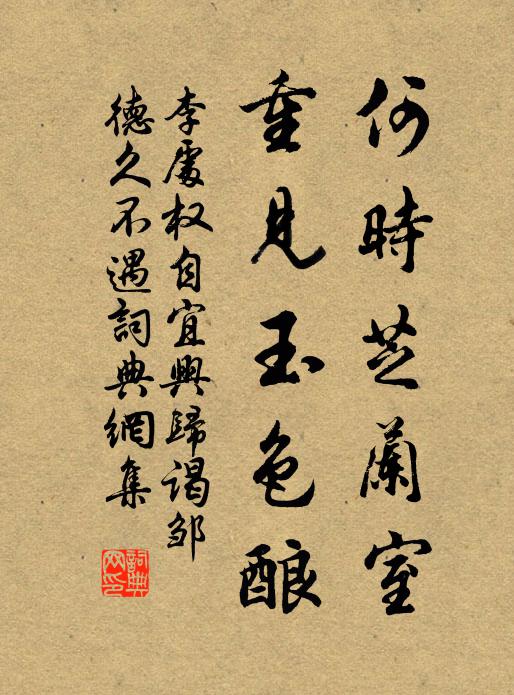 何時芝蘭室
重見玉色酿
李處权自宜興歸謁邹
德久不遇詞典網集
詞典
网印